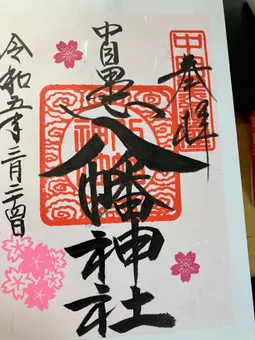 奉拝
中目黒
八幡神社
令和五年三月二十四日